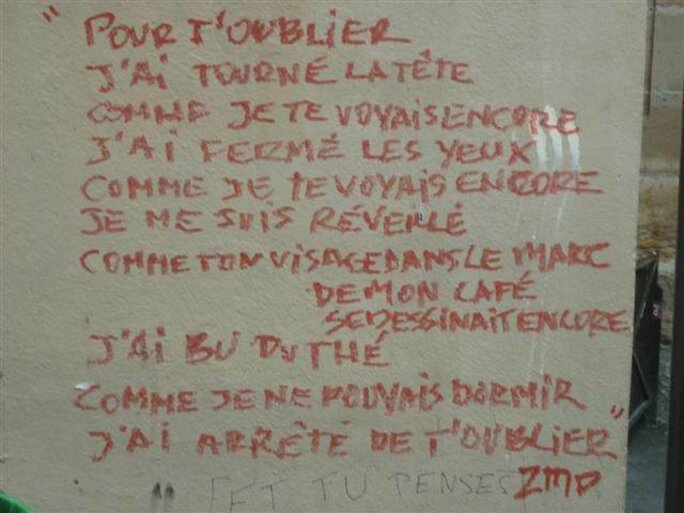 " POUR T'OUBLIER
J'AI TOURNÉ LA TÊTE
COMME JE TE VOYAIS ENCORE
J'AI FERMÉ LES YEUX
COMME JE TE VOYAIS ENCORE
JE ME SUIS RÉVEILLÉ
COMME TON VISAGE DANS LE MARC
DE MON CAFÉ
SE DESSINAIT ENCORE
J'AI BU DU THÉ
COMME JE NE POUVAIS DORMIR
J'AI ARRÊTÉ DE T'OUBLIER "
ET TU PENSES ZMD